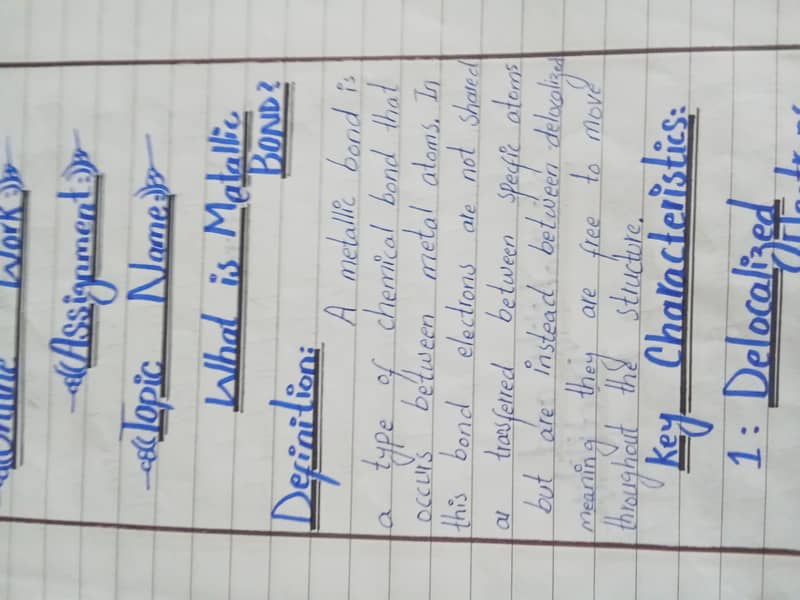 Online Work:
Assignment:
Topic Name:
What is Matallic
BOND?
Definition:
A metallic bond is
a type of chemical bond that
occurs between metal atoms. In
this bond electrons are not shared
or transferred between specific atoms
but are instead between delocalized
meaning they are free to move
throughout the structure.
Key Characteristics:
1: Delocalized